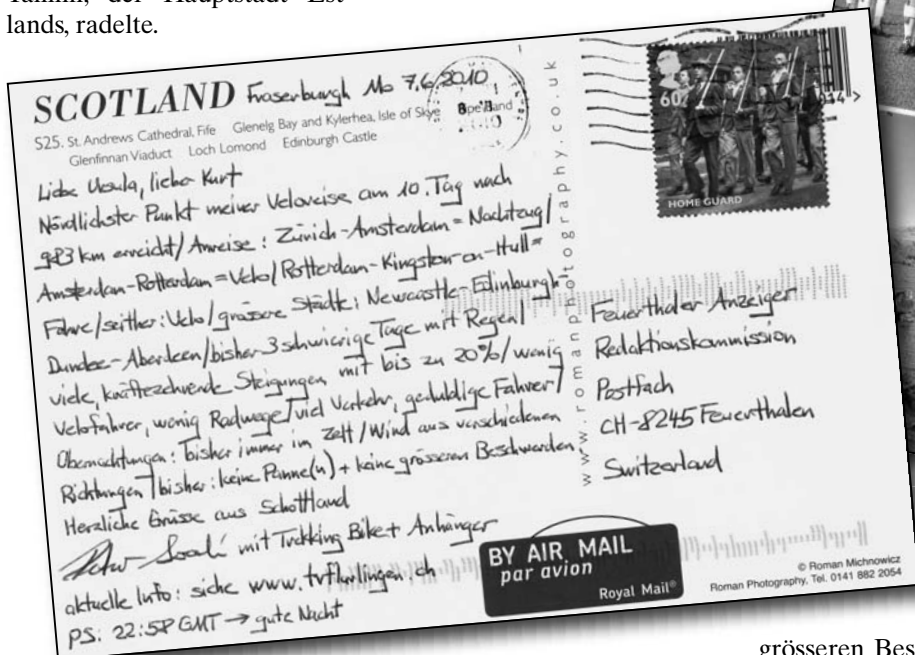 der Hauptstadt Est-
lands, radelte.
SCOTLAND Fraserburgh Mo 7.6.2010
S25. St. Andrews Cathedral, Fife Glenelg Bay and Kylerhea, Isle of Skye
Glenfinnan Viaduct Loch Lomond Edinburgh Castle
60
HOME GUARD
Liebe Ursula, lieber Kurt
Nördlichster Punkt meiner Veloreise am 10. Tag nach
983 km erreicht / Anreise: Zürich-Amsterdam = Nachtzug /
Amsterdam-Rotterdam = Velo / Rotterdam-Kingston-on-Hull =
Fähre / seither: Velo / grössere Städte: Newcastle-Edinburgh-
Dundee-Aberdeen / bisher 3 schwierige Tage mit Regen /
viele, kräftezehrende Steigungen mit bis zu 20% / wenig
Velofahrer, wenig Radwege / viel Verkehr, geduldige Fahrer /
Übernachtungen: bisher immer im Zelt / Wind aus verschiedenen
Richtungen / bisher: keine Panne(n) + keine grösseren Beschwerden
Herzliche Grüsse aus Schottland
Peter mit Trekking Bike + Anhänger
aktuelle Info: siehe www.tvflurlingen.ch
PS: 22:58 GMT → gute Nacht
www.romanphotography.co.uk
Feuerthaler Anzeiger
Redaktionskommission
Postfach
CH-8245 Feuerthalen
Switzerland
BY AIR MAIL
par avion
Royal Mail®
© Roman Michnowicz
Roman Photography, Tel. 0141 882 2054
grösseren Bes